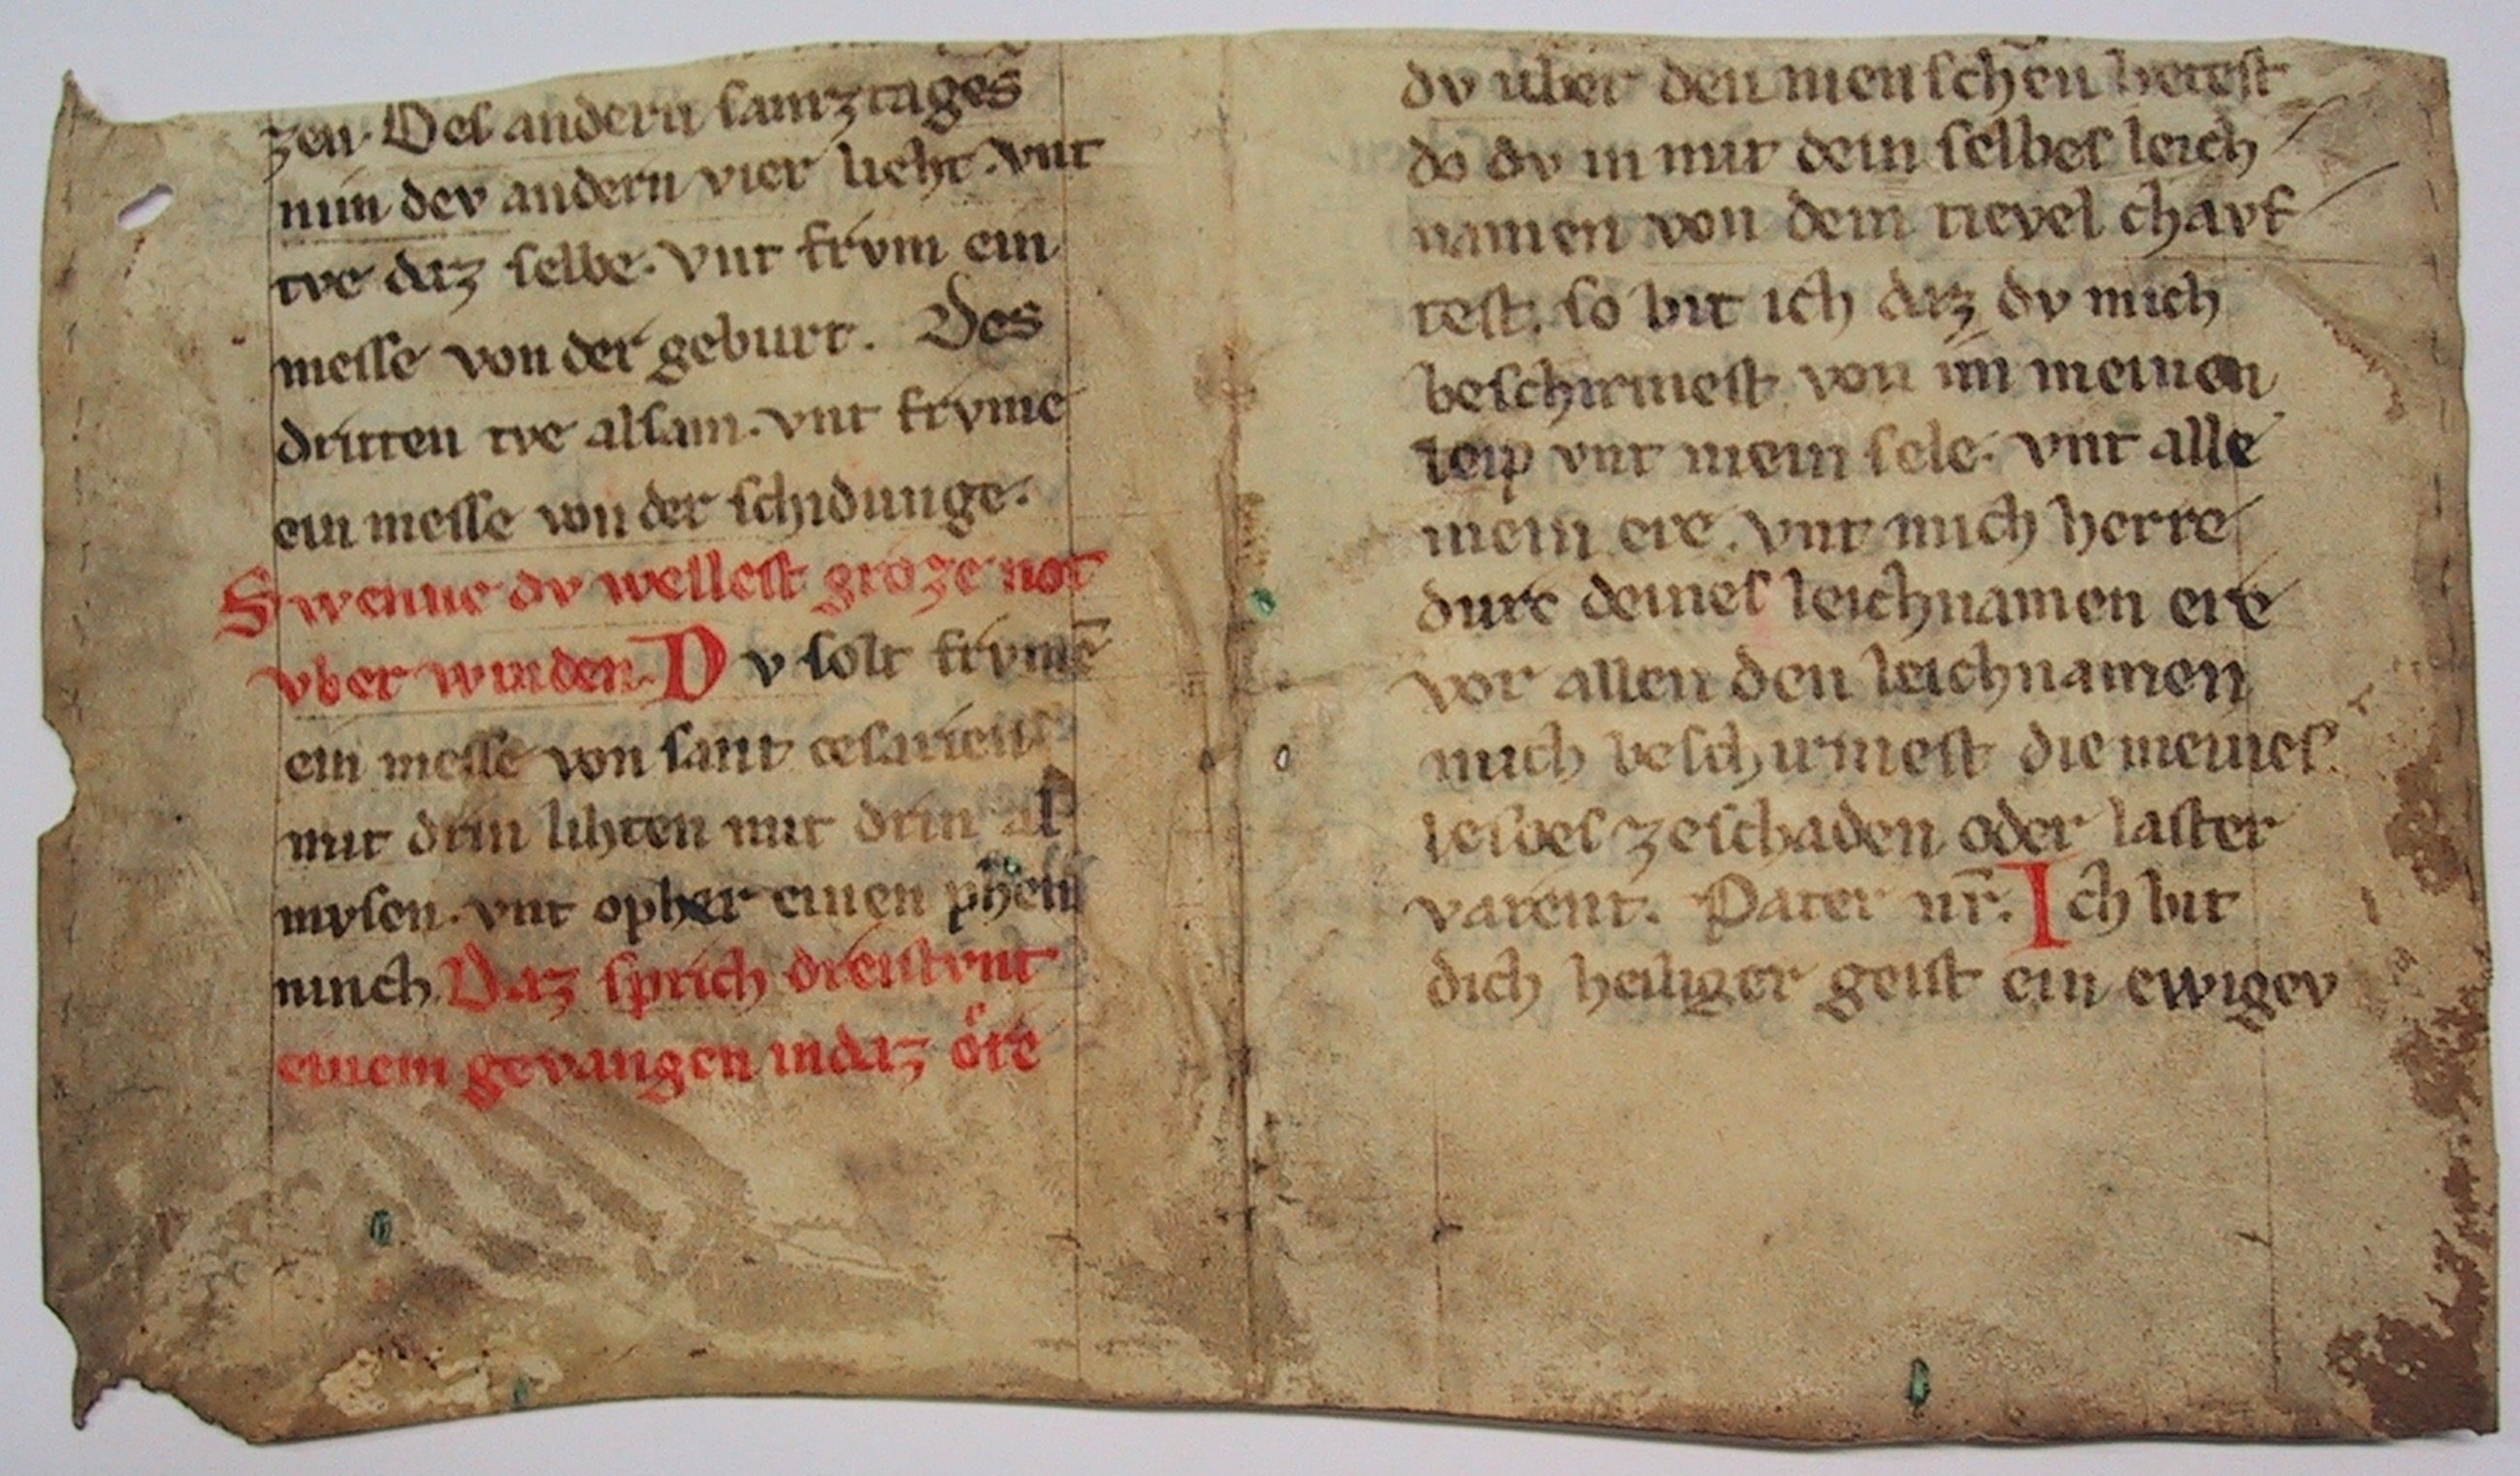 zen. Des andern samztages
nim dev andern vier lieht. vnt
tve daz selbe. vnt frvm ein
messe von der geburt. Des
dritten tve alsam. vnt frvme
ein messe von der schidunge.
Swenne dv wellest groze not
vber winden. Dv solt frvmē
ein messe von sant
mit drin lihten mit drin al
mvsen. vnt opher einen phen
ninch. Daz sprich dreistvnt
einem gevangen in daz oͤre
dv uber den menschen hetest
do dv in mit dein selbes leich
namen von dem tievel chavf
test. so bit ich daz dv mich
beschirmest von im meinen
leip vnt mein sele. vnt alle
mein ere. vnt mich herre
durc deines leichnamen ere
vor allen den leichnamen
mich beschirmest die meines
leibes ze schaden oder laster
varent. Pater nr̄. Ich bit
dich heiliger geist ein ewigev